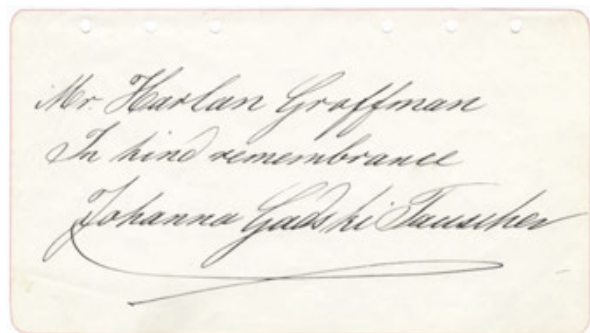 Mr. Harlan Groffman
In kind remembrance
Johanna Gadski Tauscher